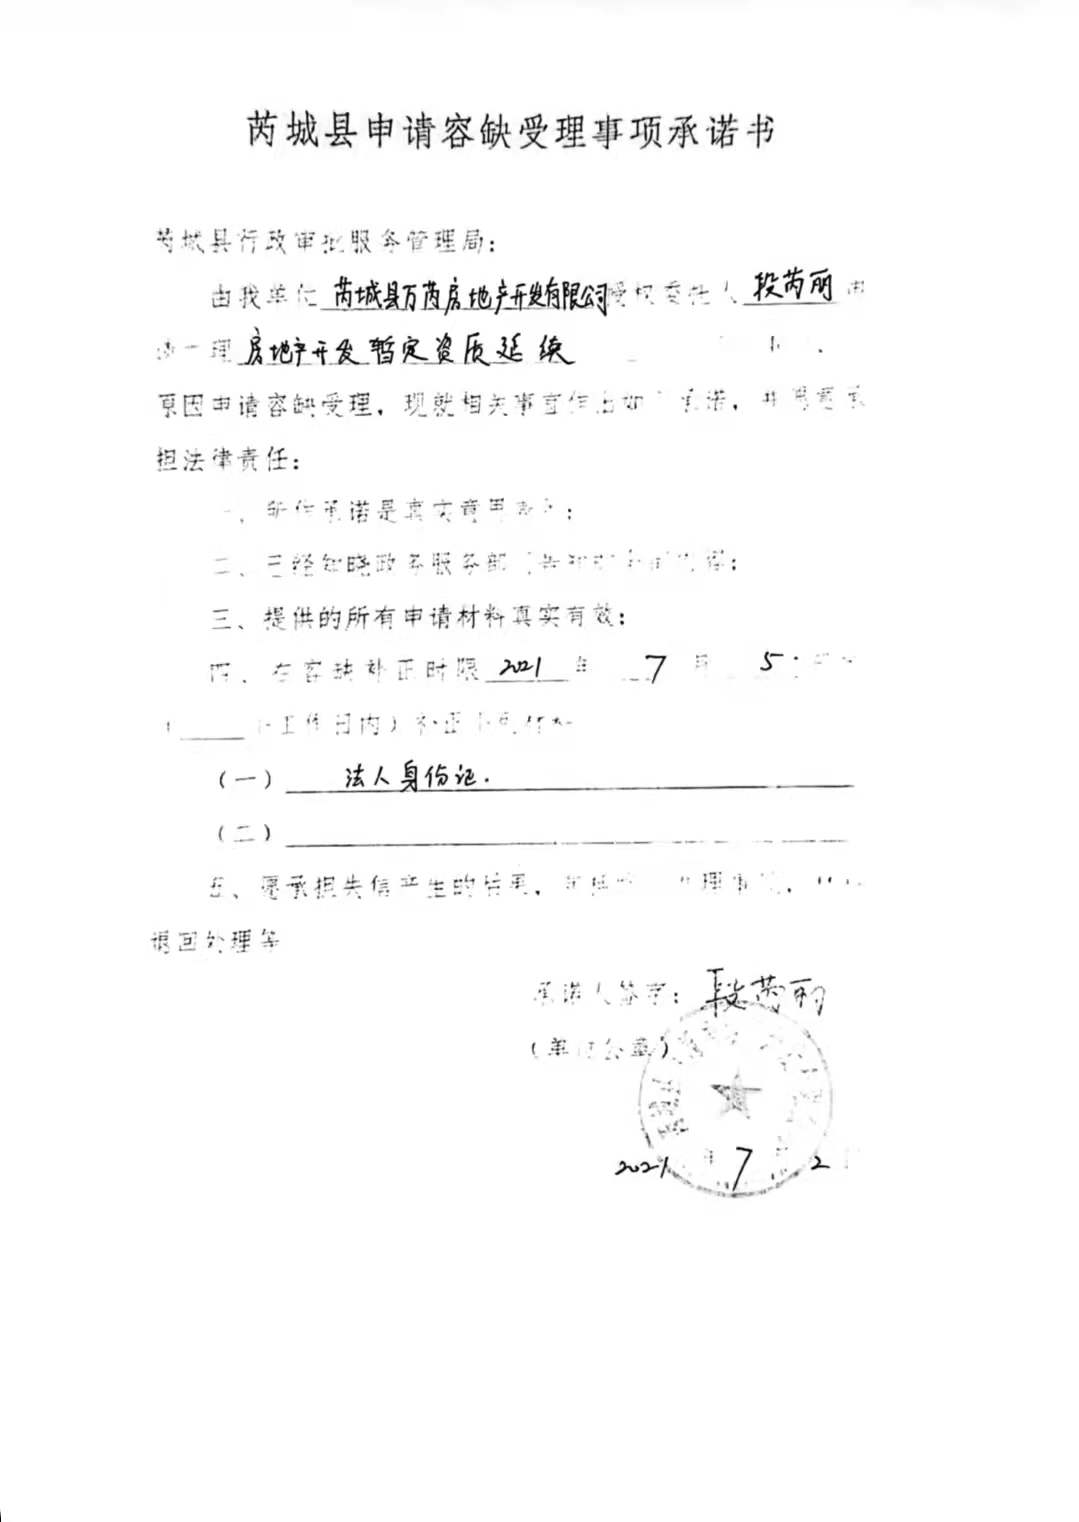 芮城县申请容缺受理事项承诺书
芮城县行政审批服务管理局：
由我单位芮城县万芮房地产开发有限公司授权委托人段芮丽申
请办理房地产开发暂定资质延续
原因申请容缺受理，现就相关事宜作出如下承诺，并愿意承
担法律责任：
一、所作承诺是真实意思表示；
二、已经知晓政务服务部门告知的全部内容；
三、提供的所有申请材料真实有效；
四、在容缺补正时限2021年7月5日
（ 个工作日内）补正下列材料
（一）法人身份证.
（二）
五、愿承担失信产生的后果，理事
退回处理等
承诺人签字：段芮丽
（单位公章）
2021年7月2日